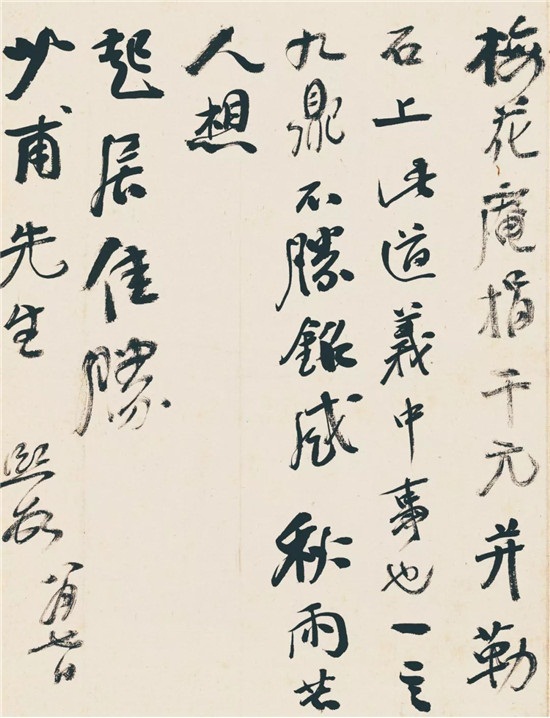 梅花庵捐千元并勒
石上此道義中事也一言
九鼎不勝銘感秋雨苦
人想
起居佳勝
少甫先生熙頓八月廿日